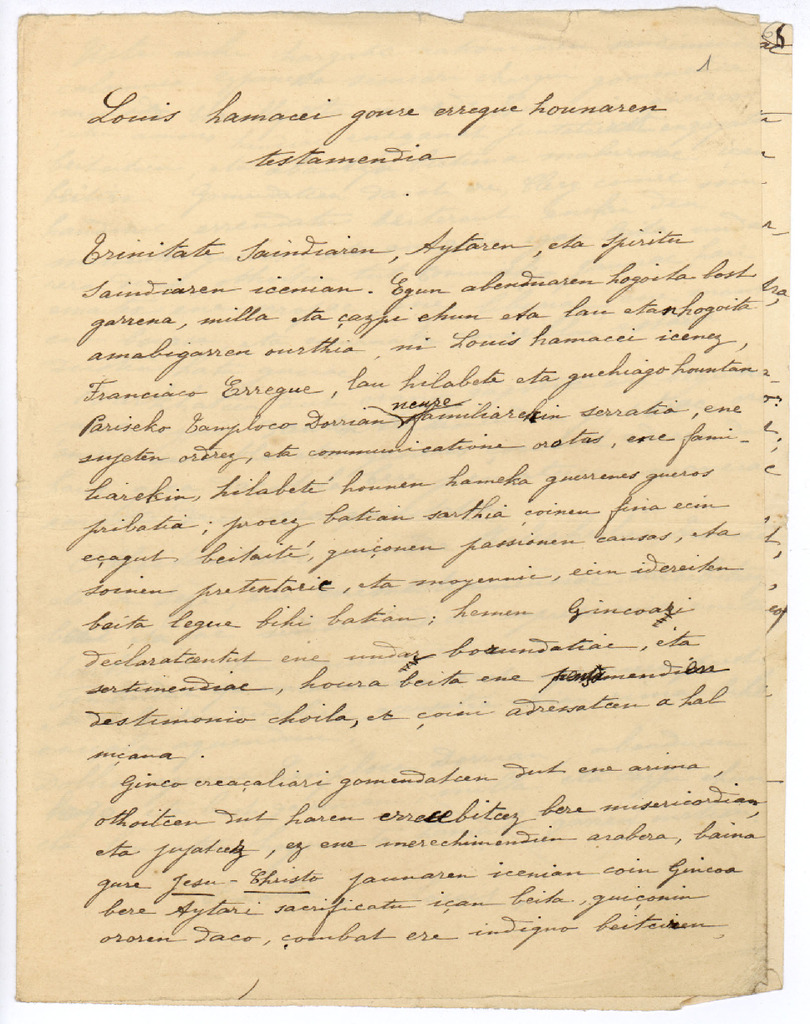 1
Louis hamacei goure erregue hounaren
testamendia
Trinitate Saindiaren, Aytaren, eta Spiritu
Saindiaren icenian. Egun abenduaren hogoita bost
garrena, milla eta çazpi ehun eta lau etan hogoita
amabigarren ourthia, ni Louis hamacei icenez,
Franciaco Erregue, lau hilabete eta guehiago hountan
Pariseko Tamploco Dorrian neure familiarekin serratia, ene
sujeten ordrez, eta communicatione orotas, ene fami-
liarekin, hilabete hounen hameka guerrenes gueros
pribatia; procez batian sarthia çoineu fina ecin
eçagut beitaité, guiçonen passionen causas, eta
soineu pretextaric, eta moyennic, ecin idereiten
beita legue bihi batian; hemen Gincoari
déclaratcentut ene undar borundatiac, eta
sertimendiac, houra beita ene mendien
destimonio choila, et çoini adressatcen a hal
niçana.
Ginco creaçaliari gomendatcen dut ene arima,
othoitcen dut haren errecebitcez bere misericordian,
eta jujatcez, ez ene merechimendien arabera, baina
gure Jesu-Christo jaunaren icenian coin Gincoa
bere Aytari sacrificatu içan beita, guiçonin
ororen daco, çombat ere indigno beitciren,